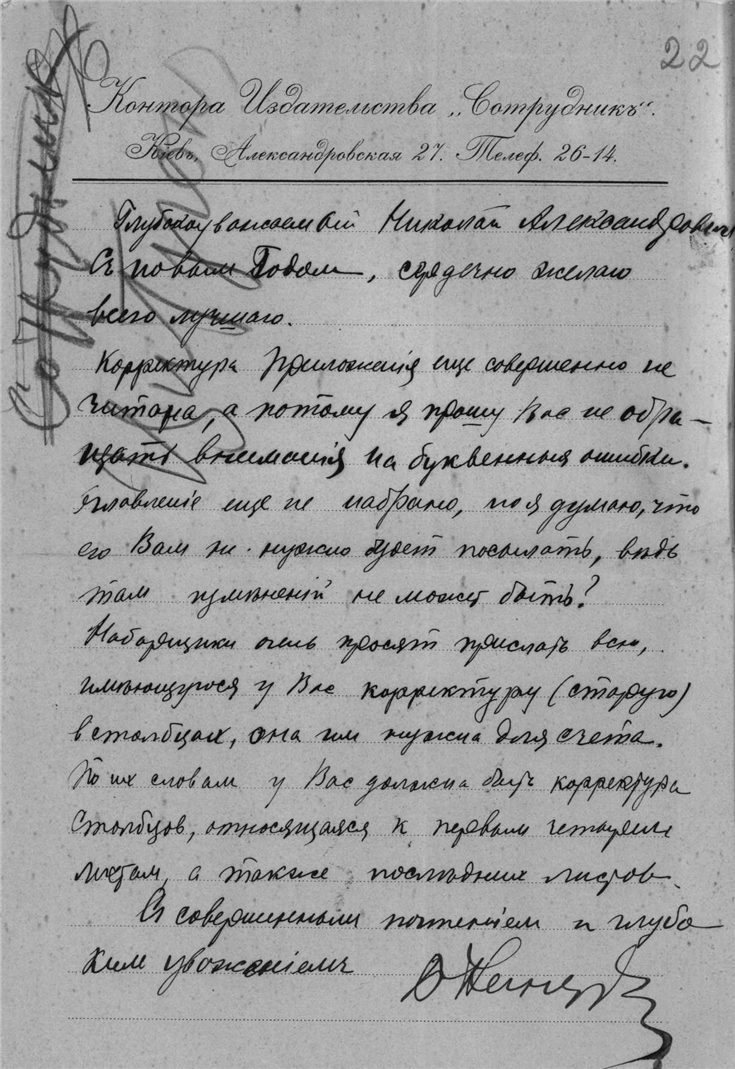 22
Контора Издательства „Сотрудникъ“.
Кіевъ, Александровская 27. Телеф. 26-14.
Глубокоуважаемый Николай Александрович
С новым Годом, сердечно желаю
всего лучшаго.
Корректура Приложенія еще совершенно не
читана, а потому я прошу Вас не обра-
щать вниманія на буквенныя ошибки.
Оглавленіе еще не набрано, но я думаю, что
его Вам не нужно будет посылать, ведь
там измѣненій не может быть?
Наборщики очень просят прислать всю,
имѣющуюся у Вас корректуру (старую)
в столбцах, она им нужна для счета.
По их словам у Вас должна быть корректура
столбцов, относящаяся к первым четырем
листам, а также последних листов.
С совершенным почтеніем и глубо
ким уваженіемъ